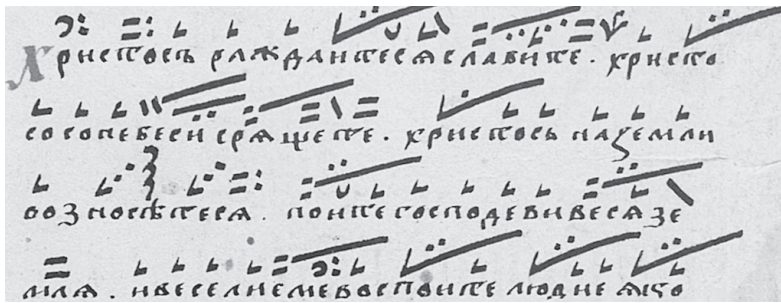 Христосъ раждаитесѧ славите . христо
со сонебеси срѧщете . христосъ на земли
возносѣтесѧ . поите господеви весѧ зе
млѧ . ивеселиеме воспоите людие ѧко